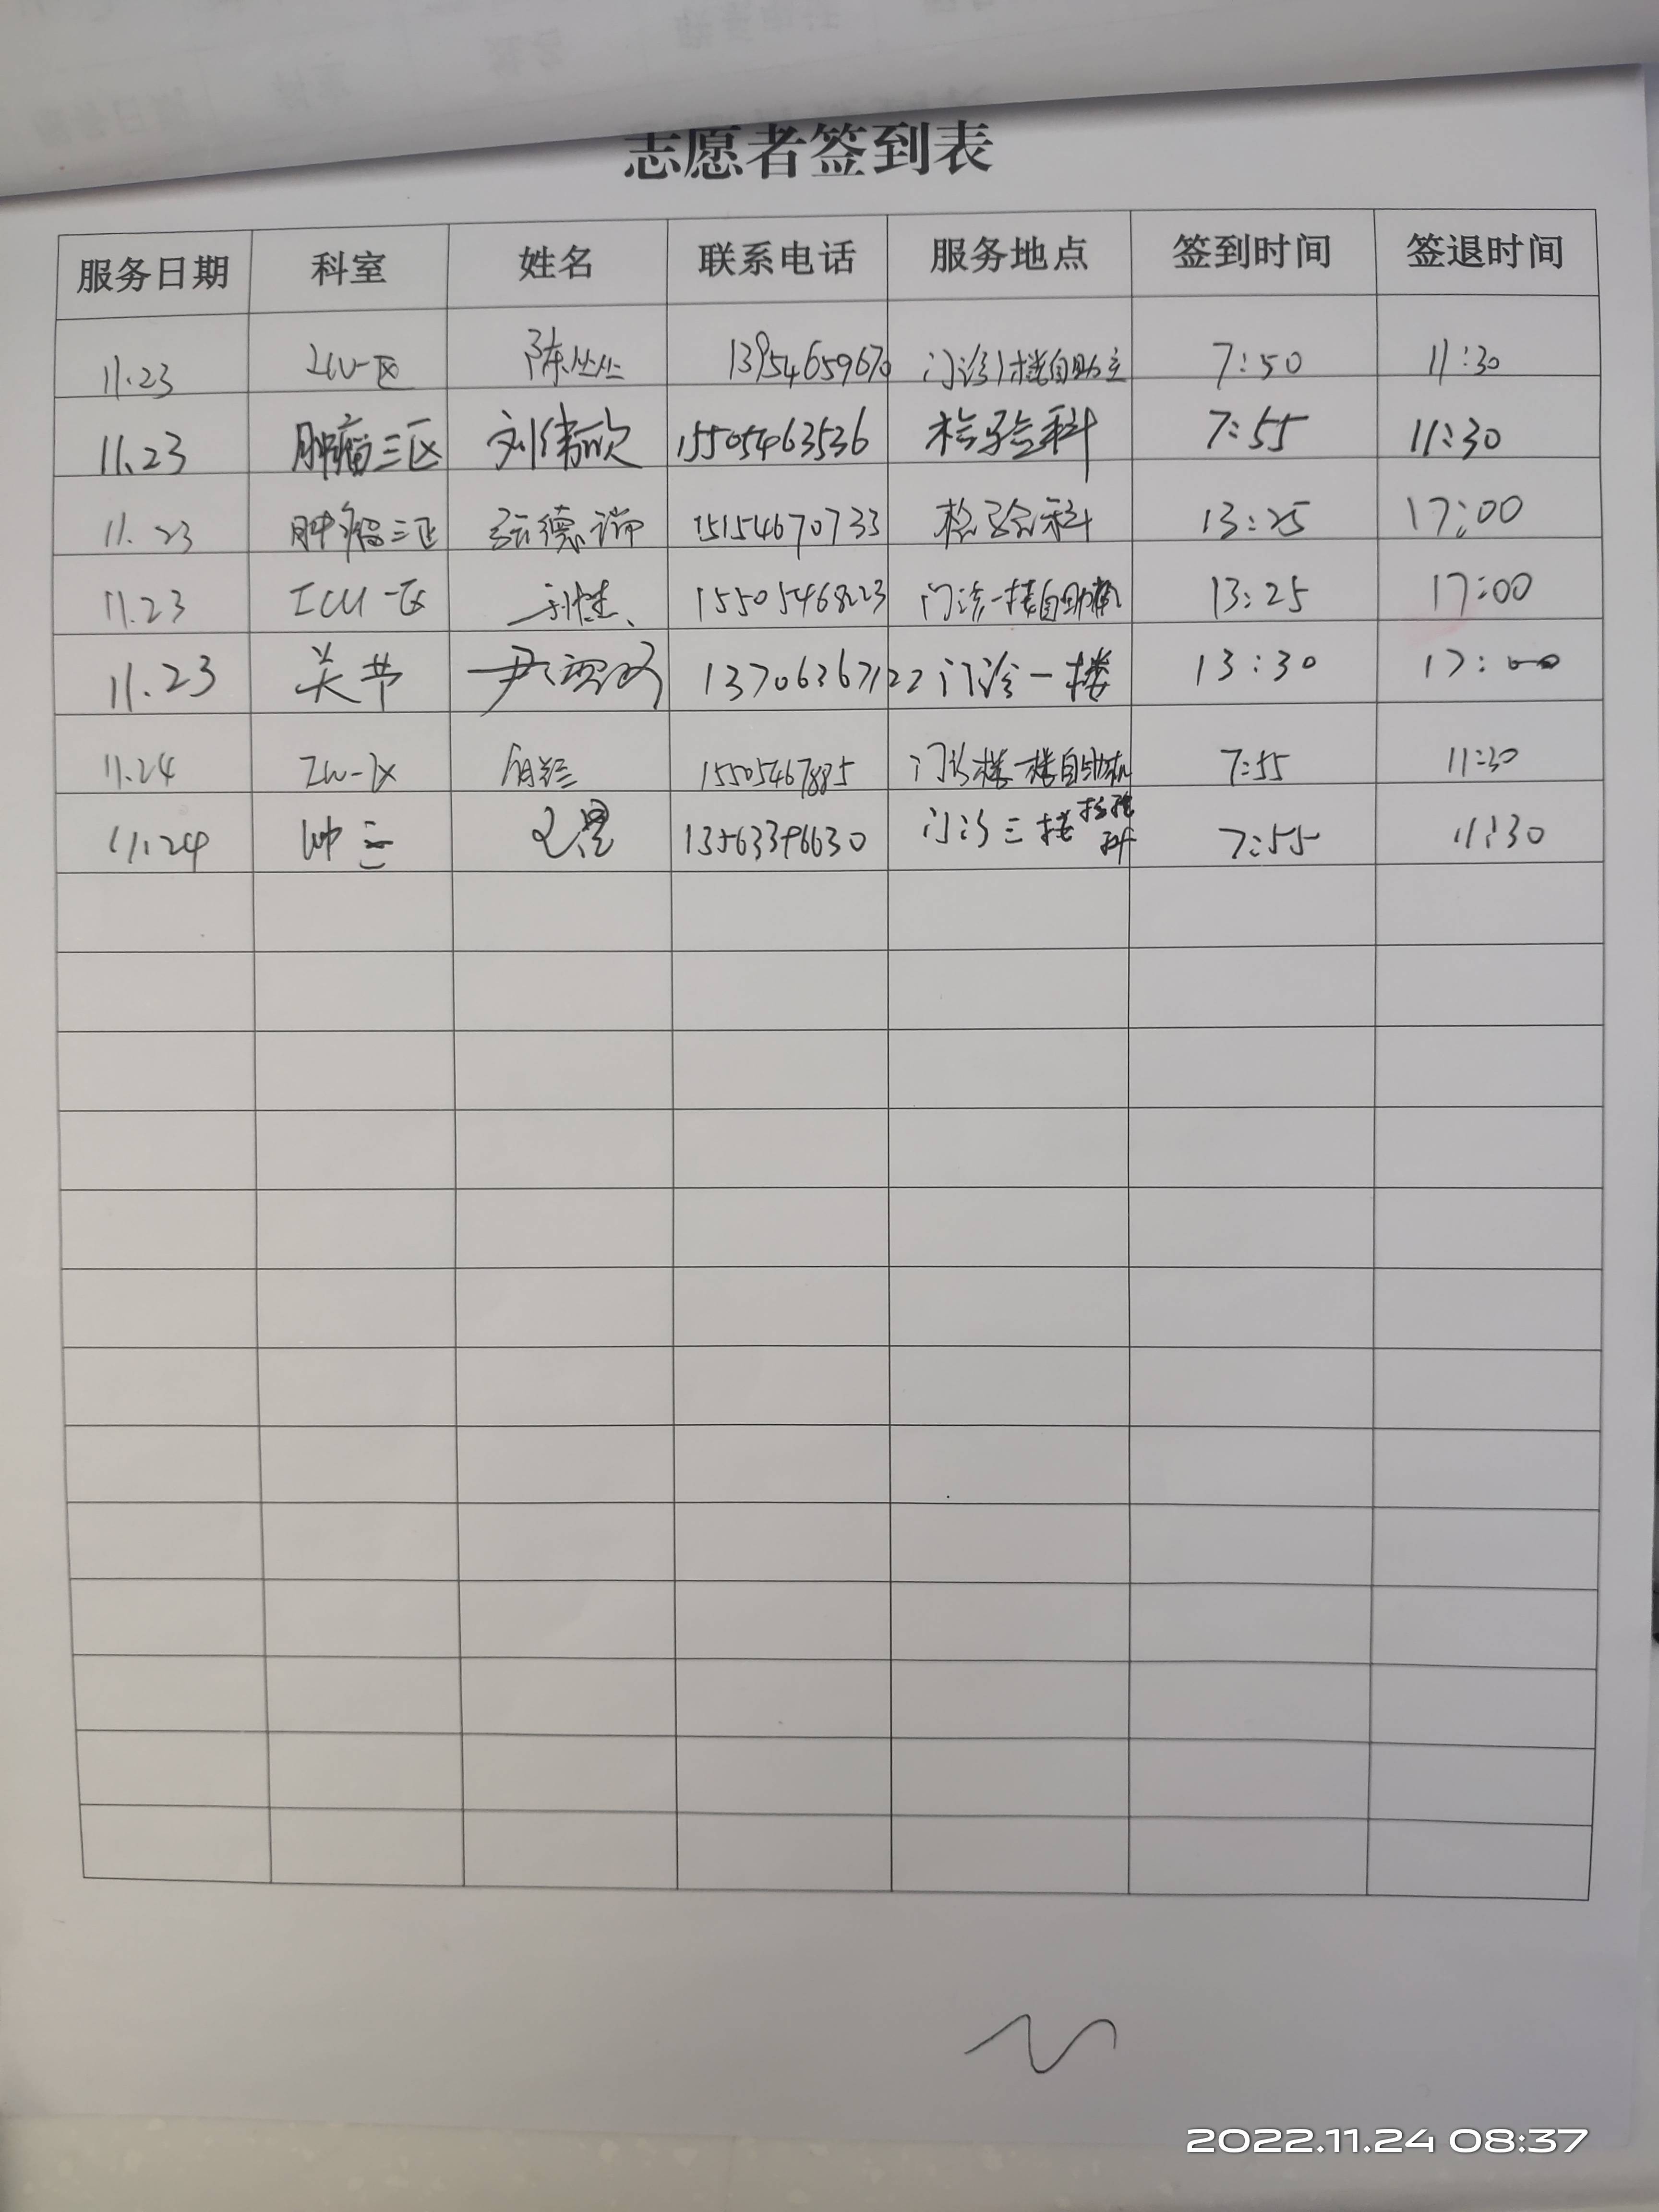 志愿者签到表
服务日期 科室 姓名 联系电话 服务地点 签到时间 签退时间
11.23 ICU一区 陈丛丛 13954659670 门诊1楼自助 7:50 11:30
11.23 肿瘤三区 刘伟欣 15505463536 检验科 7:55 11:30
11.23 肿瘤三区 15154670733 检验科 13:25 17:00
11.23 ICU一区 15505468223 门诊一楼自助 13:25 17:00
11.23 关节 13706367122 门诊一楼 13:30 17:00
11.24 ICU一区 15505467885 门诊楼一楼自助机 7:55 11:30
11.24 肿三 13563396630 门诊三楼检验科 7:55 11:30
2022.11.24 08:37